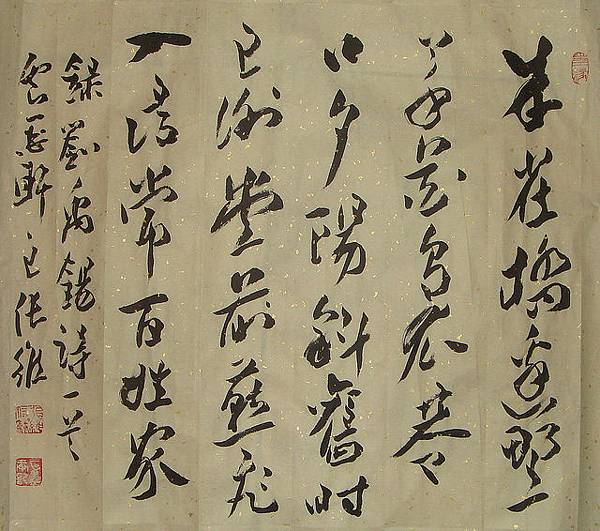 朱雀橋邊野
草花烏衣巷
口夕陽斜舊時
王謝堂前燕飛
入尋常百姓家
錄劉禹錫詩一首
軒主張維